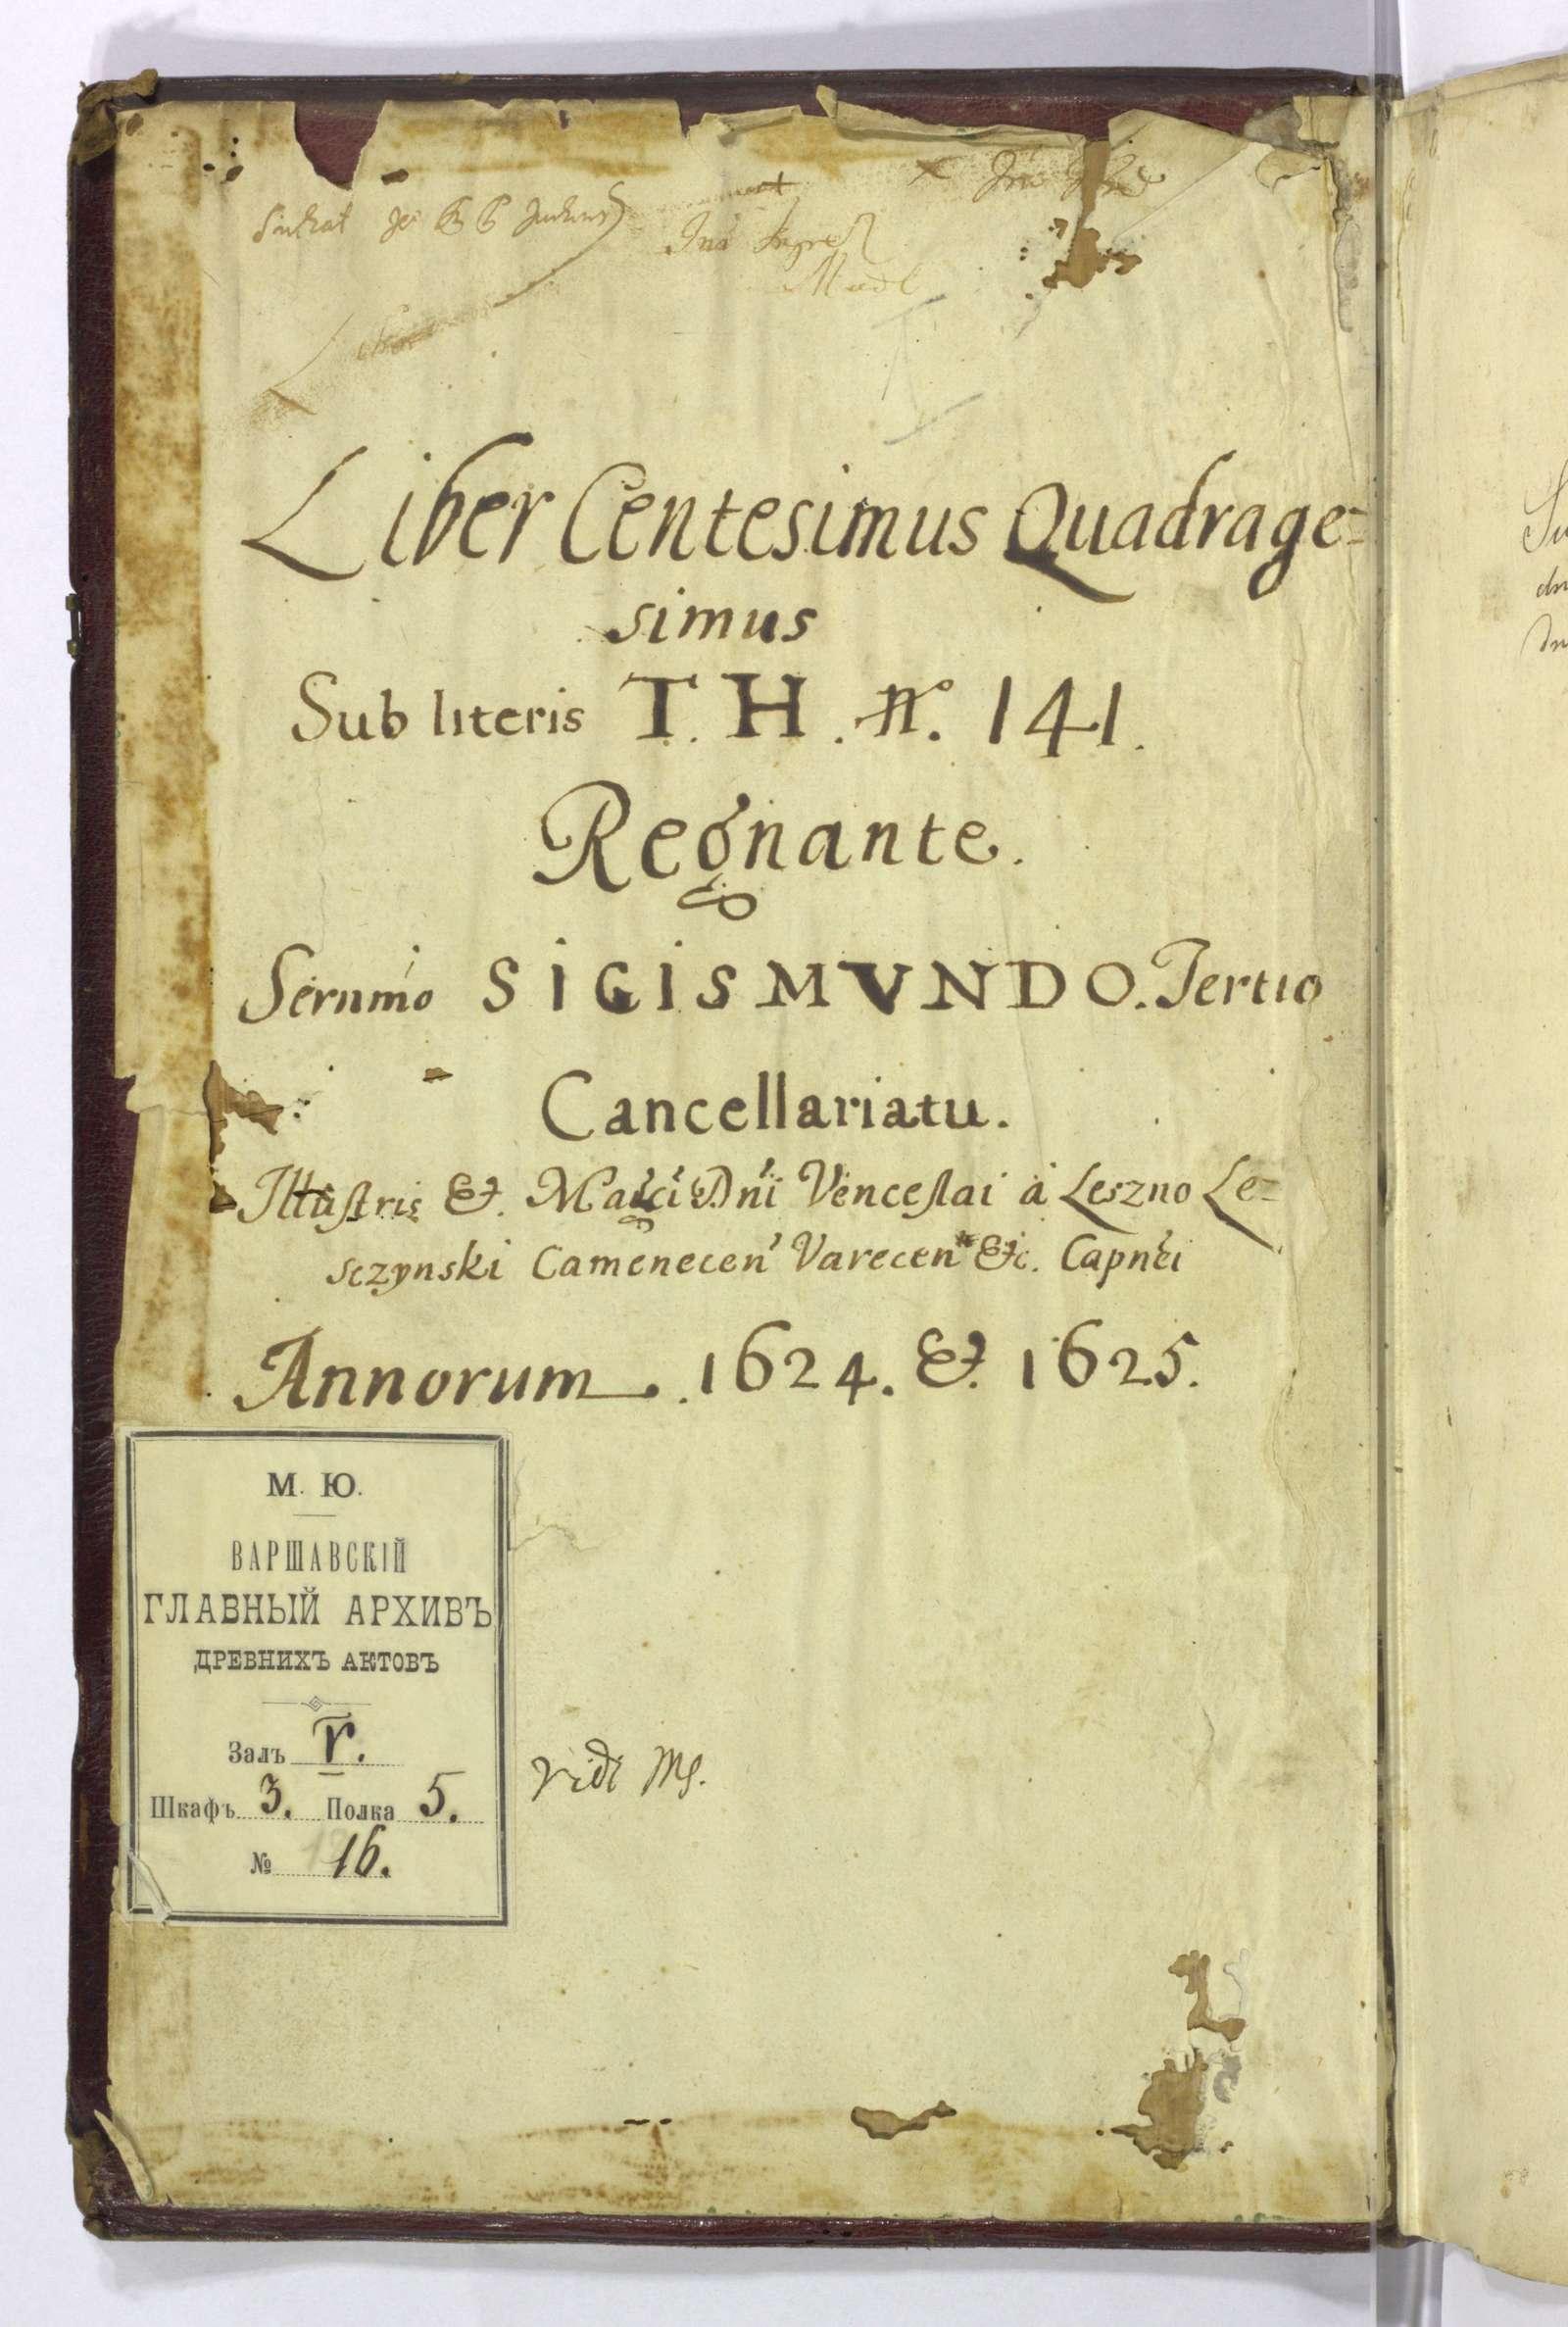 Liber Centesimus Quadrage=
simus
Sub literis T. H. No. 141.
Regnante.
Sernmo SIGISMVNDO. Tertio
Cancellariatu.
Illustris &. Magci Dni Venceslai à Leszno Le=
sczynski Camenecen Varecen &c. Capnei
Annorum. 1624. &. 1625.
М. Ю.
ВАРШАВСКІЙ
ГЛАВНЫЙ АРХИВЪ
ДРЕВНИХЪ АКТОВЪ
Залъ V.
Шкафъ 3. Полка 5.
№ 16.
Vidi MS.